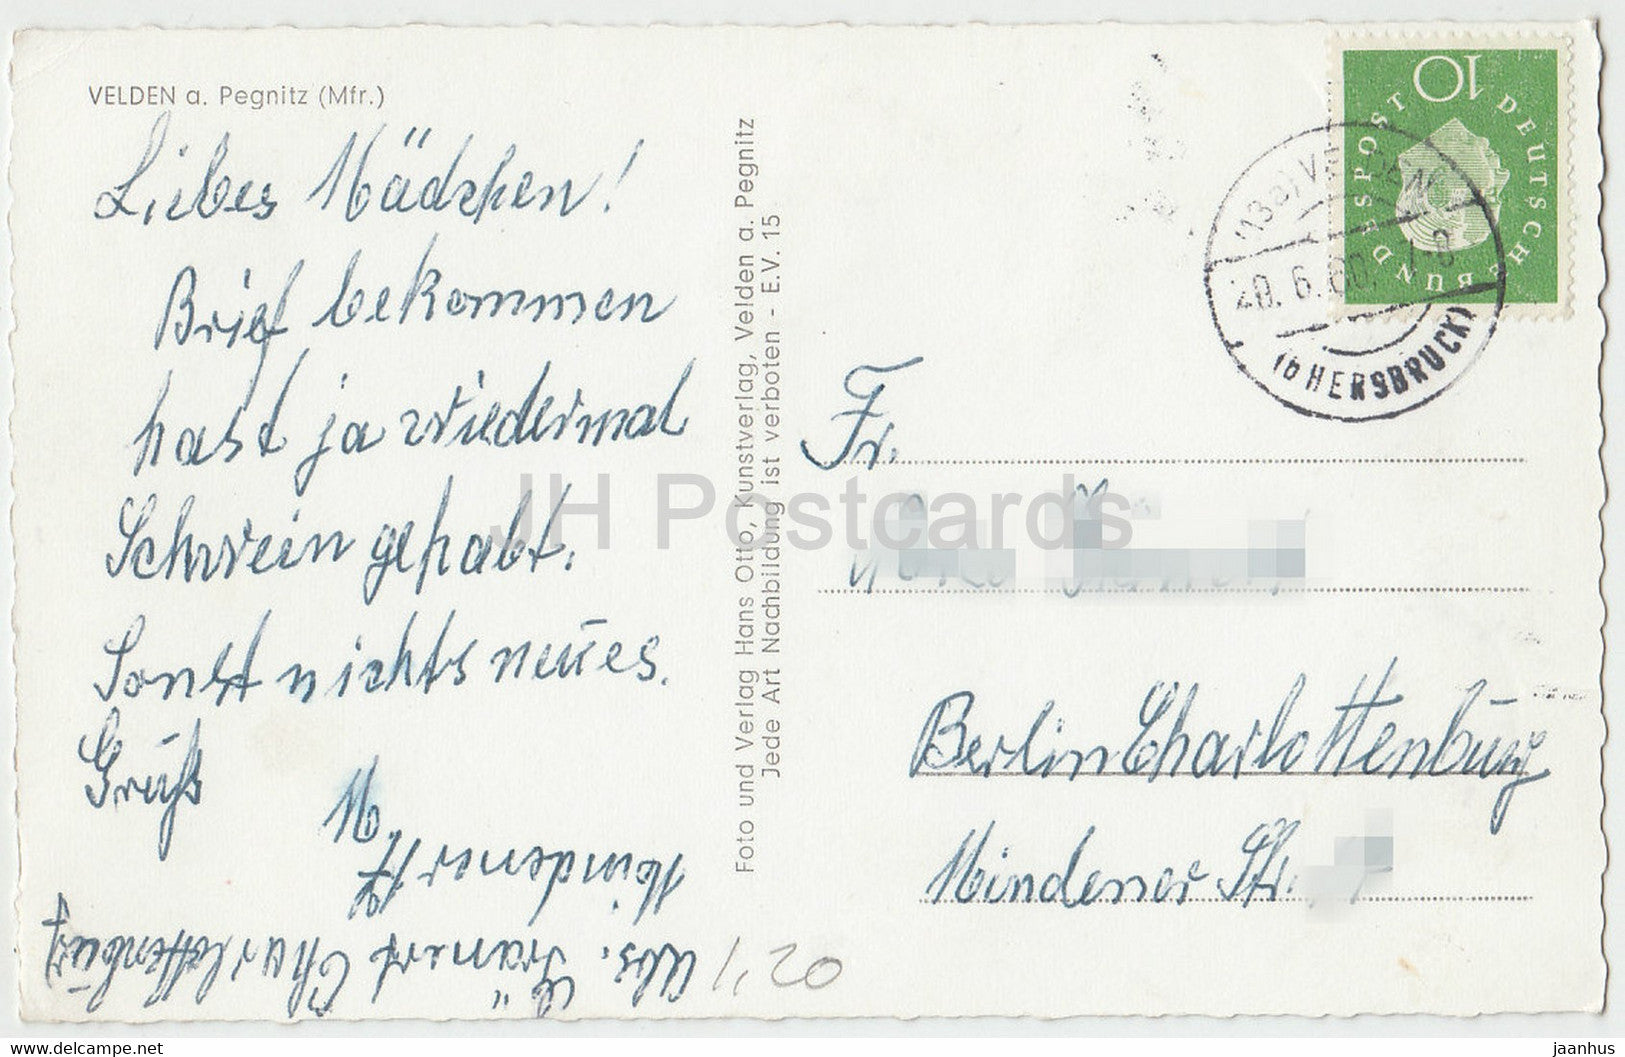 VELDEN a. Pegnitz (Mfr.)
Liebes Mädchen!
Brief bekommen
hast ja wiedermal
Schwein gehabt.
Sonst nichts neues.
Gruß
M
Abs.
Charlottenburg
Mindener
1,20
Foto und Verlag Hans Otto, Kunstverlag, Velden a. Pegnitz
Jede Art Nachbildung ist verboten - E.V. 15
DEUTSCHE BUNDESPOST
10
(13a) VELDEN
20. 6. 60. 7-8
(b HERSBRUCK)
Fr.
Berlin Charlottenburg
Mindener Str.
JH Postcards
https://www.delcampe.net
jaanhus